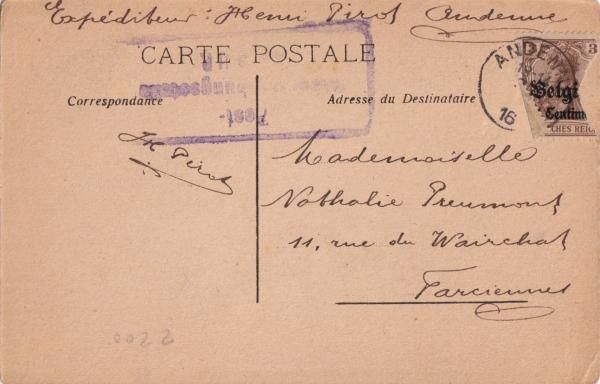 Expéditeur: Henri Pirot Andenne
CARTE POSTALE
Correspondance
Adresse du Destinataire
ANDENN
16
3
Belgi
Centim
CHES REIC
Post-
H. Pirot
Mademoiselle
Nathalie Preumont
11, rue du Wairchat
Farciennes